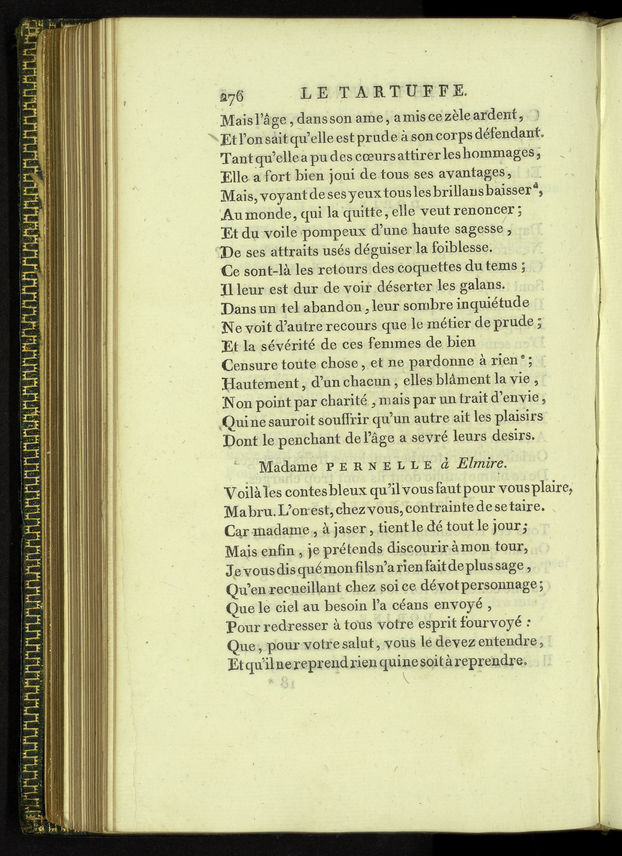 276 LE TARTUFFE.
Mais l'âge, dans son ame, a mis ce zèle ardent,
Et l'on sait qu'elle est prude à son corps défendant.
Tant qu'elle a pu des cœurs attirer les hommages,
Elle a fort bien joui de tous ses avantages,
Mais, voyant de ses yeux tous les brillans baisser ᵈ,
Au monde, qui la quitte, elle veut renoncer;
Et du voile pompeux d'une haute sagesse,
De ses attraits usés déguiser la foiblesse.
Ce sont-là les retours des coquettes du tems;
Il leur est dur de voir déserter les galans.
Dans un tel abandon, leur sombre inquiétude
Ne voit d'autre recours que le métier de prude;
Et la sévérité de ces femmes de bien
Censure toute chose, et ne pardonne à rien ᵉ;
Hautement, d'un chacun, elles blâment la vie,
Non point par charité, mais par un trait d'envie,
Qui ne sauroit souffrir qu'un autre ait les plaisirs
Dont le penchant de l'âge a sevré leurs desirs.
Madame PERNELLE à Elmire.
Voilà les contes bleux qu'il vous faut pour vous plaire,
Ma bru. L'on est, chez vous, contrainte de se taire.
Car madame, à jaser, tient le dé tout le jour;
Mais enfin, je prétends discourir à mon tour,
Je vous dis qué mon fils n'a rien fait de plus sage,
Qu'en recueillant chez soi ce dévot personnage;
Que le ciel au besoin l'a céans envoyé,
Pour redresser à tous votre esprit fourvoyé:
Que, pour votre salut, vous le devez entendre,
Et qu'il ne reprend rien qui ne soit à reprendre.